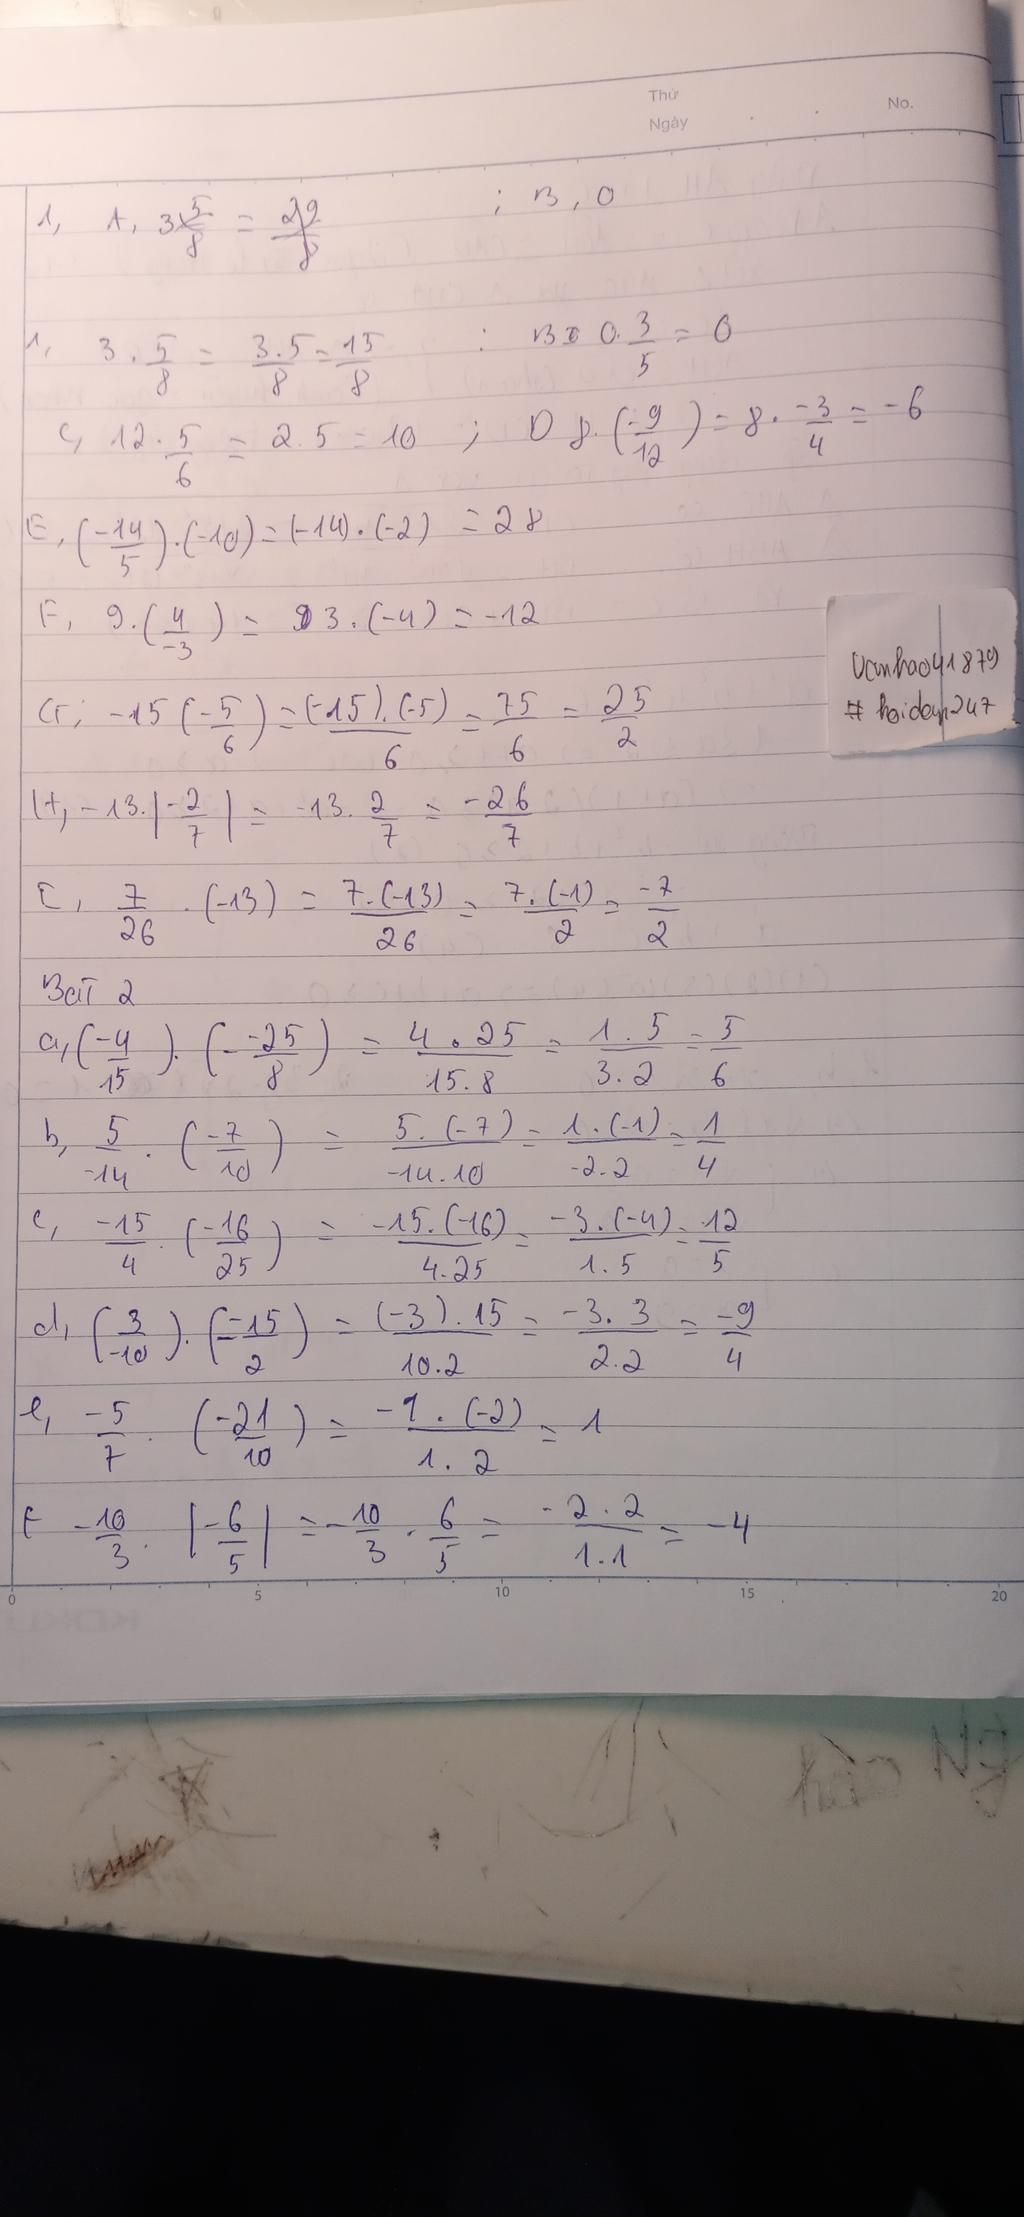 Thứ
Ngày
No.
1, A, 3 5/8 = 29/8 ; B, 0
1, 3 . 5/8 = 3.5/8 = 15/8 ; B 0. 3/5 = 0
C, 12 . 5/6 = 2 . 5 = 10 ; D 8. (-9/12) = 8 . -3/4 = -6
E, (-14/5) . (-10) = (-14) . (-2) = 28
F, 9 . (4/-3) = 3 . (-4) = -12
Vanhao41879
# hoidap247
G; -15 (-5/6) = (-15).(-5)/6 = 75/6 = 25/2
H, -13. |-2/7| = -13. 2/7 = -26/7
I, 7/26 . (-13) = 7.(-13)/26 = 7.(-1)/2 = -7/2
Bài 2
a, (-4/15) . (- -25/8) = 4 . 25/15.8 = 1.5/3.2 = 5/6
b, 5/-14 . (-7/10) = 5.(-7)/-14.10 = 1.(-1)/-2.2 = 1/4
c, -15/4 . (-16/25) = -15.(-16)/4.25 = -3.(-4)/1.5 = 12/5
d, (3/-10) . (- -15/2) = (-3).15/10.2 = -3.3/2.2 = -9/4
e, -5/7 . (-21/10) = -1 . (-2)/1 . 2 = 1
F -10/3 . |-6/5| = -10/3 . 6/5 = -2.2/1.1 = -4
0 5 10 15 20